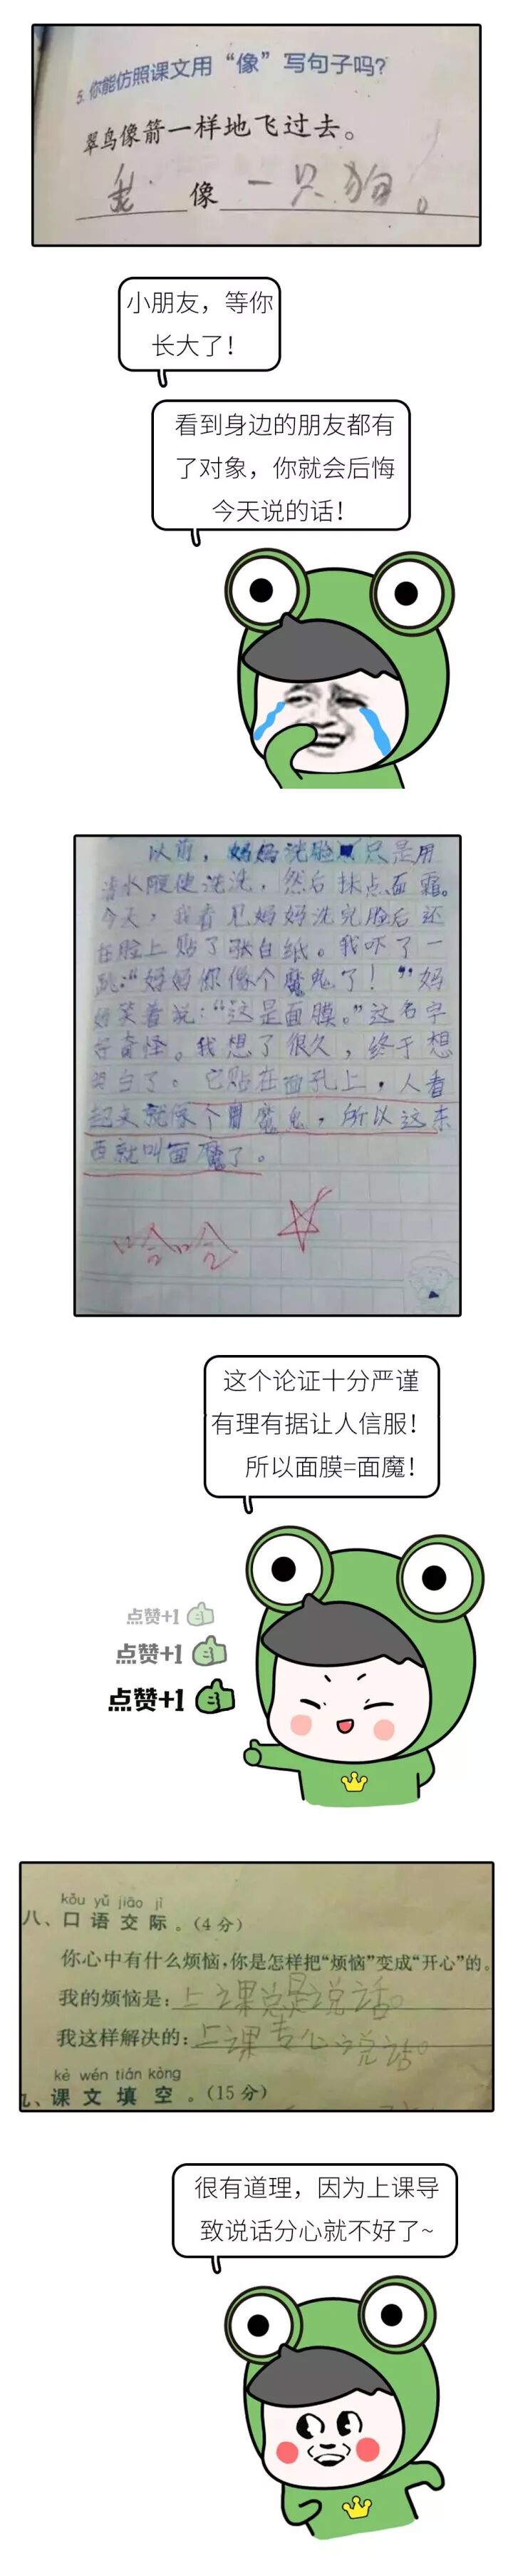 5. 你能仿照课文用“像”写句子吗?
翠鸟像箭一样地飞过去。
我 像 一只狗。
小朋友，等你
长大了！
看到身边的朋友都有
了对象，你就会后悔
今天说的话！
以前，妈妈洗脸只是用
清水随便洗洗，然后抹点面霜。
今天，我看见妈妈洗完脸后还
在脸上贴了张白纸。我吓了一
跳:“妈妈你像个魔鬼了！”妈
妈笑着说:“这是面膜。”这名字
好奇怪。我想了很久，终于想
明白了。它贴在面孔上，人看
起来就像个魔鬼，所以这东
西就叫面魔了。
哈哈
这个论证十分严谨
有理有据让人信服！
所以面膜=面魔！
点赞+1
点赞+1
点赞+1
kǒu yǔ jiāo jì
八、口语交际。(4分)
你心中有什么烦恼,你是怎样把“烦恼”变成“开心”的。
我的烦恼是:上课总是说话。
我这样解决的:上课专心说话。
kè wén tián kòng
九、课文填空。(15分)
很有道理，因为上课导
致说话分心就不好了~